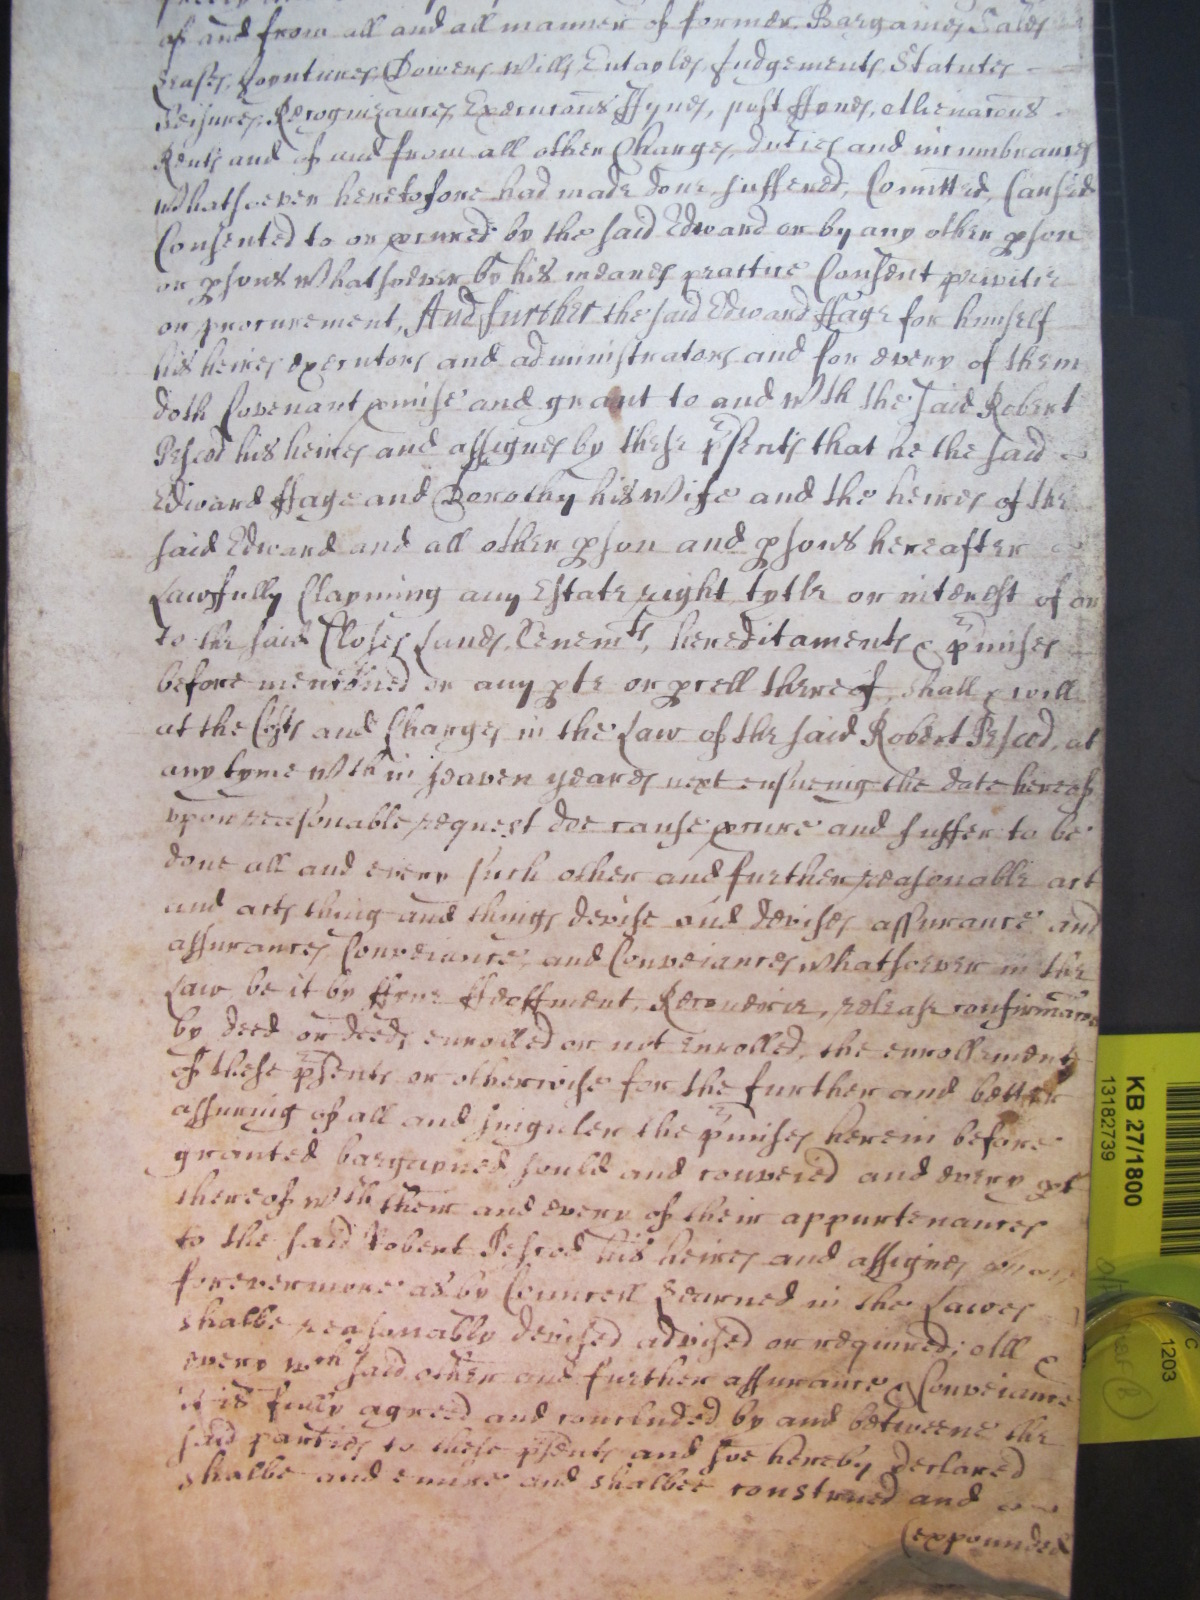 of and from all and all manner of former Bargaines Sales
Leases, Joyntures, Dowers, Wills, Entayles, Judgements, Statutes
Seisures, Recognizances, Execucons ffynes, post ffynes, Alienacons
Rents and of and from all other Charges, duties and incumbrances
Whatsoever heretofore had made done, suffered, Comitted, Caused
Consented to or pcured by the said Edward or by any other pson
or psons Whatsoever by his meanes practice Consent privitie
or procurement, And further the said Edward ffage for himself
his heires executors and administrators and for every of them
doth Covenant pmise and grant to and wth the said Robert
Pescod his heires and assignes by these psents that he the said
Edward ffage and Dorothy his Wife and the heires of the
said Edward and all other pson and psons hereafter
Lawfully Clayming any Estate right tytle or interest of or
to the said Closes Lands, Tenemts, hereditaments & pmises
before mentioned or any pte or pcell thereof, shall & will
at the Costs and Charges in the Law of the said Robert Pescod, at
any tyme wthin seaven yeares next ensueing the date hereof
upon reasonable request doe cause pcure and suffer to be
done all and every such other and further reasonable act
and acts thing and things devise and devises assurance and
assurances, Conveiance, and Conveiances whatsoever in the
Law be it by ffyne ffeoffment, Recoverie, release confirmacon
by deed or deeds enrolled or not enrolled, the enrollment
of these psents or otherwise for the further and better
assuring of all and singuler the pmises herein before
granted bargayned sould and conveied and every pt
thereof wth them and every of their appurtenances
to the said Robert Pescod his heires and assignes
forevermore as by Councell Learned in the Lawes
shalbe reasonably devised advised or required; All
every wch said other and further assurance & Conveiance
it is fully agreed and concluded by and betweene the
said parties to these psents and soe hereby declared
shalbe and enure and shalbee construed and
(expounded
KB 27/1800
13182739
C
1203